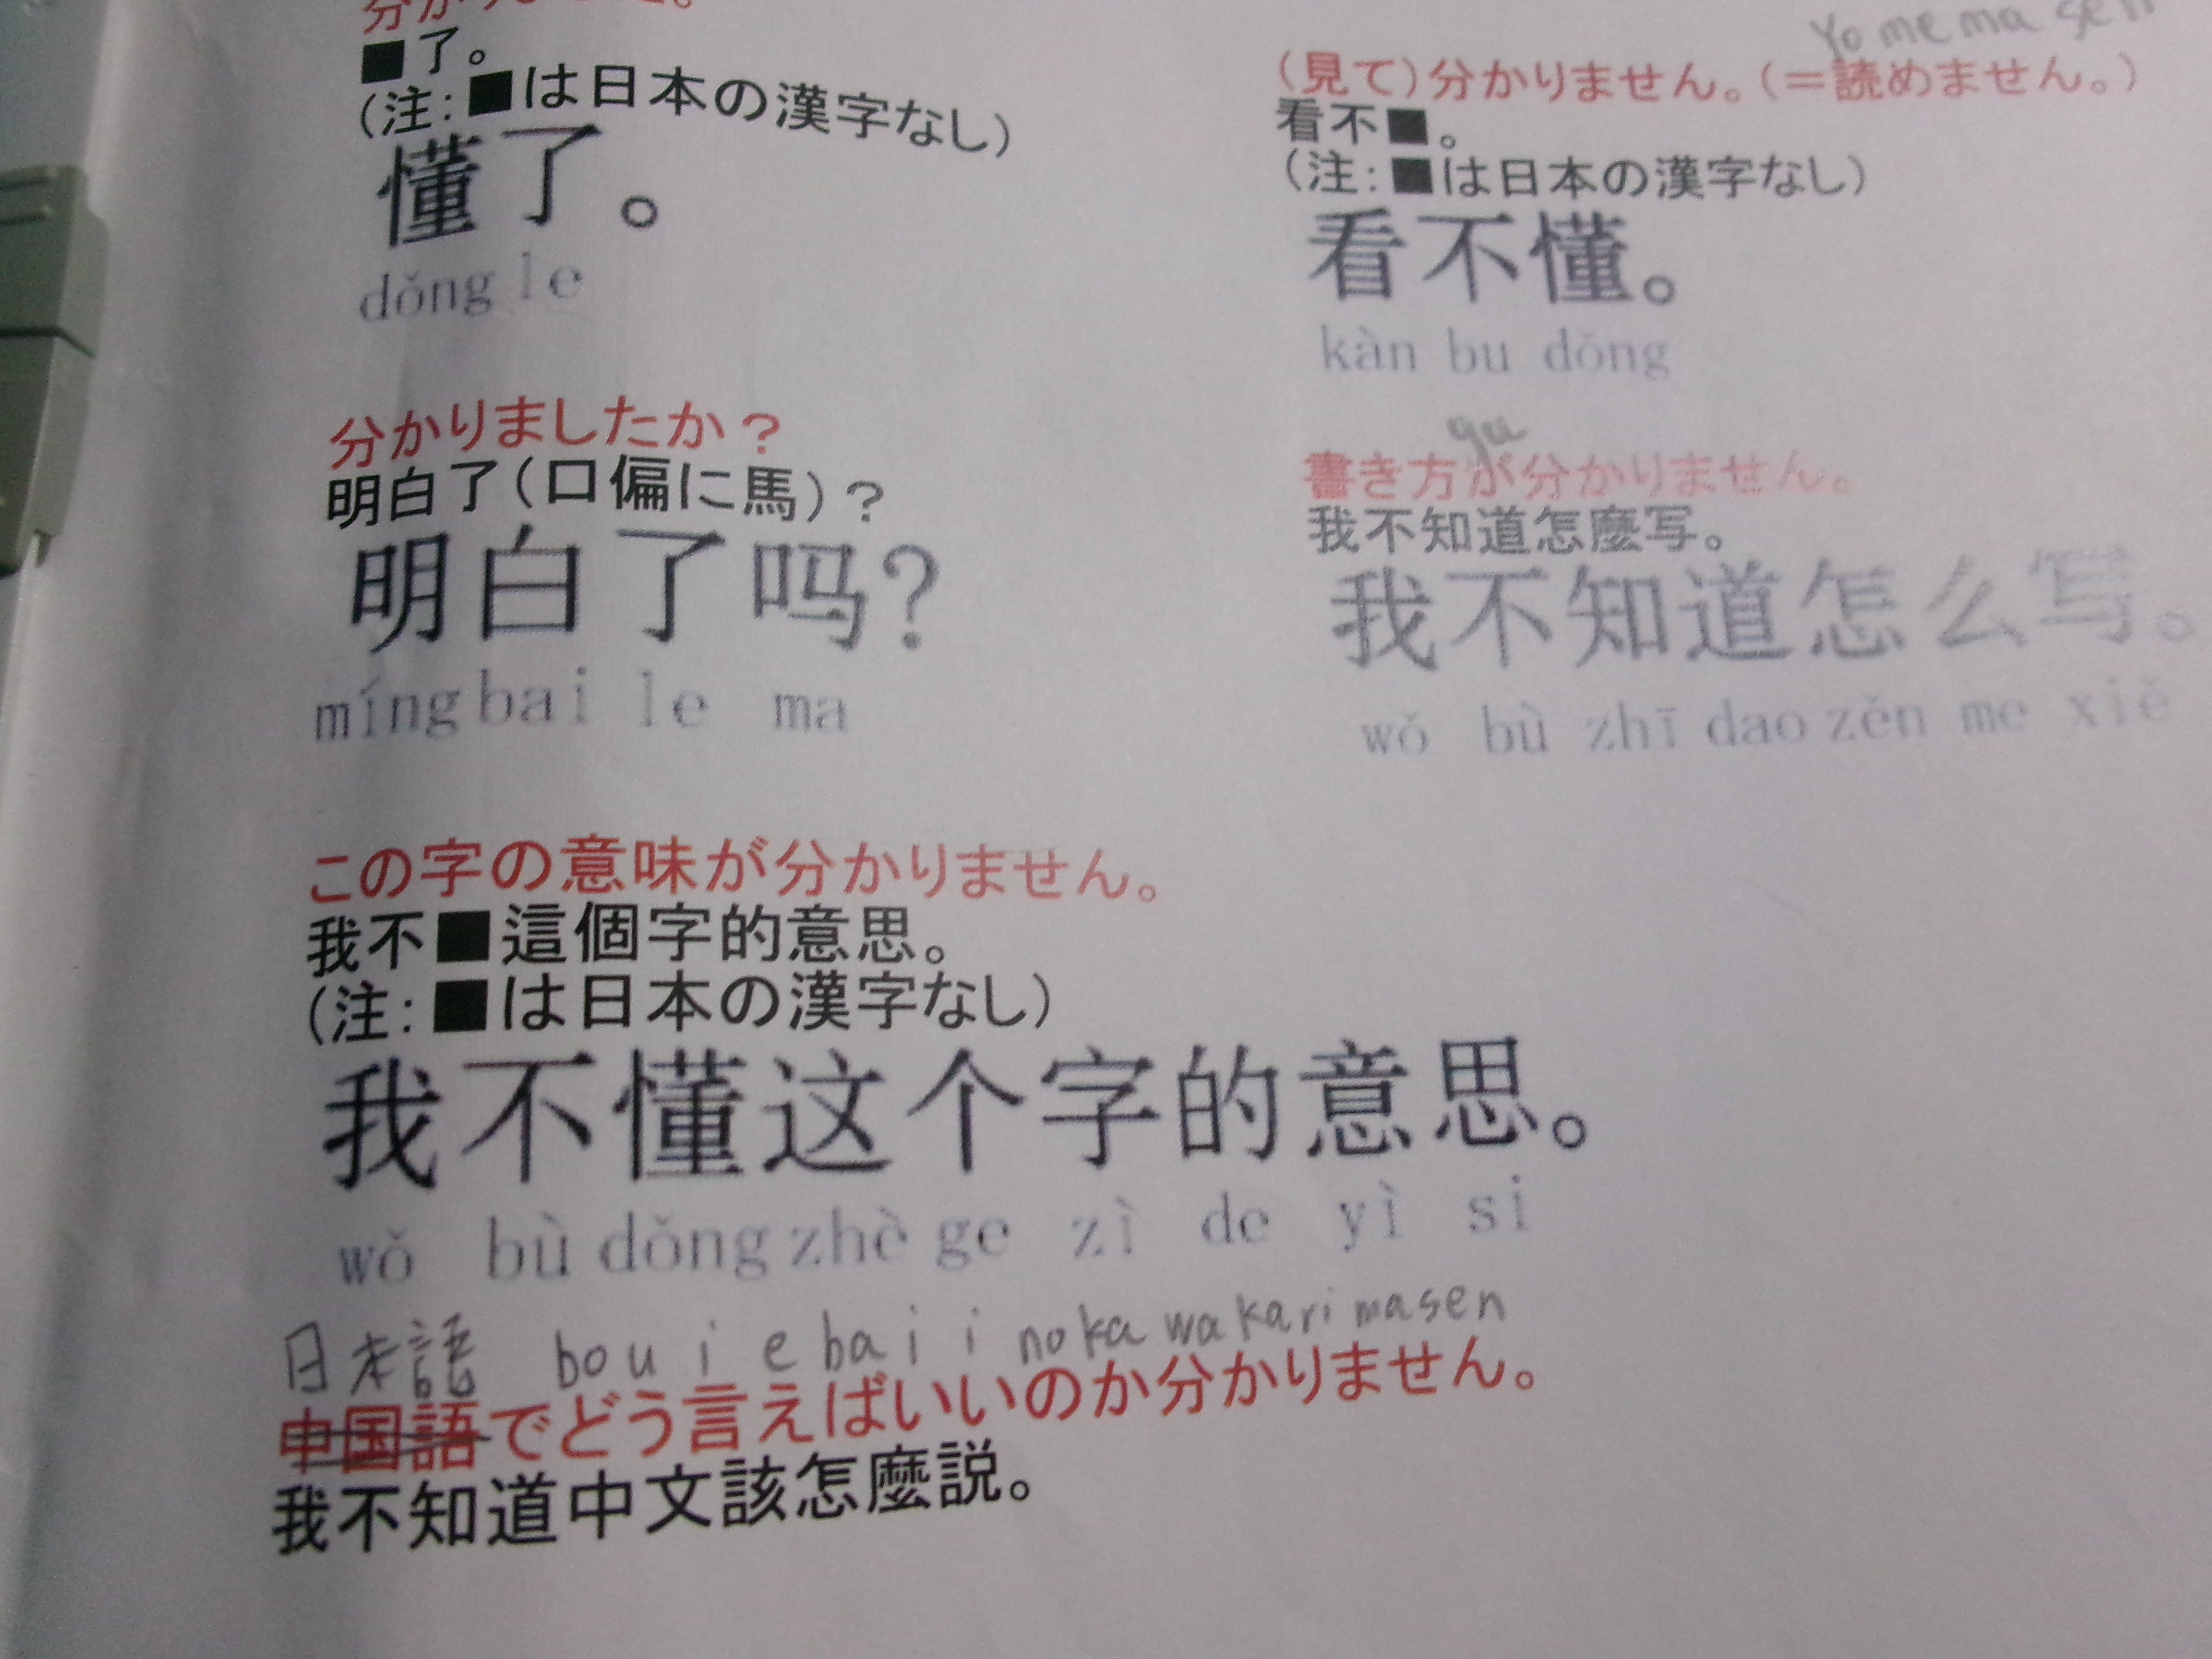 分かりました。
■了。
(注:■は日本の漢字なし)
懂了。
dǒng le
分かりましたか？
明白了(口偏に馬)？
明白了吗?
míng bai le ma
この字の意味が分かりません。
我不■這個字的意思。
(注:■は日本の漢字なし)
我不懂这个字的意思。
wǒ bù dǒng zhè ge zì de yì si
日本語 bou i e ba i i no ka wa kari masen
中国語でどう言えばいいのか分かりません。
我不知道中文該怎麼説。
Yo me ma sen
(見て)分かりません。(＝読めません。)
看不■。
(注:■は日本の漢字なし)
看不懂。
kàn bu dǒng
ga
書き方が分かりません。
我不知道怎麼写。
我不知道怎么写。
wǒ bù zhī dao zěn me xiě